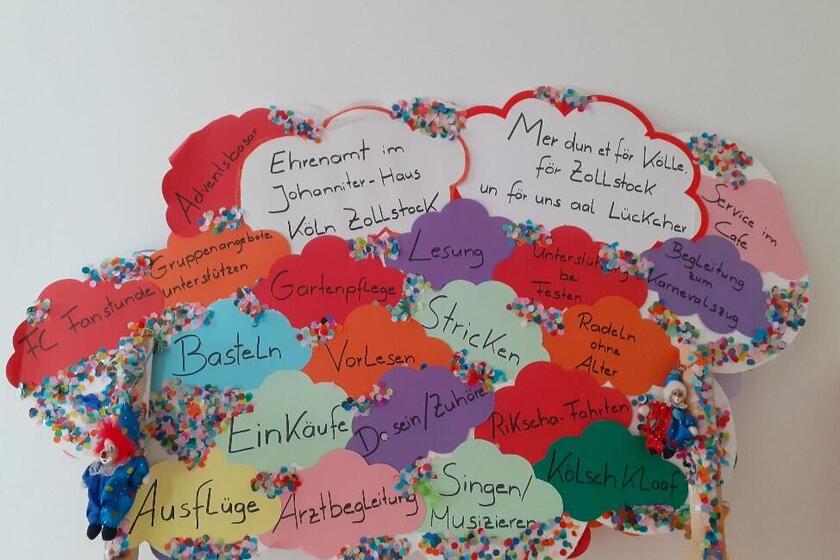 Adventsbasar
Ehrenamt im
Johanniter-Haus
Köln Zollstock
Mer dun et för Kölle,
för Zollstock
un för uns aal Lückcher
Service im
Cafe
Gruppenangebote
unterstützen
Lesung
Unterstützung
bei
Festen
Begleitung
zum
Karnevalszug
FC Fanstunde
Gartenpflege
Stricken
Radeln
ohne
Alter
Basteln
Vorlesen
Einkäufe
Da sein/Zuhören
Rikscha-Fahrten
Ausflüge
Arztbegleitung
Singen/
Musizieren
Kölsch Klaaf